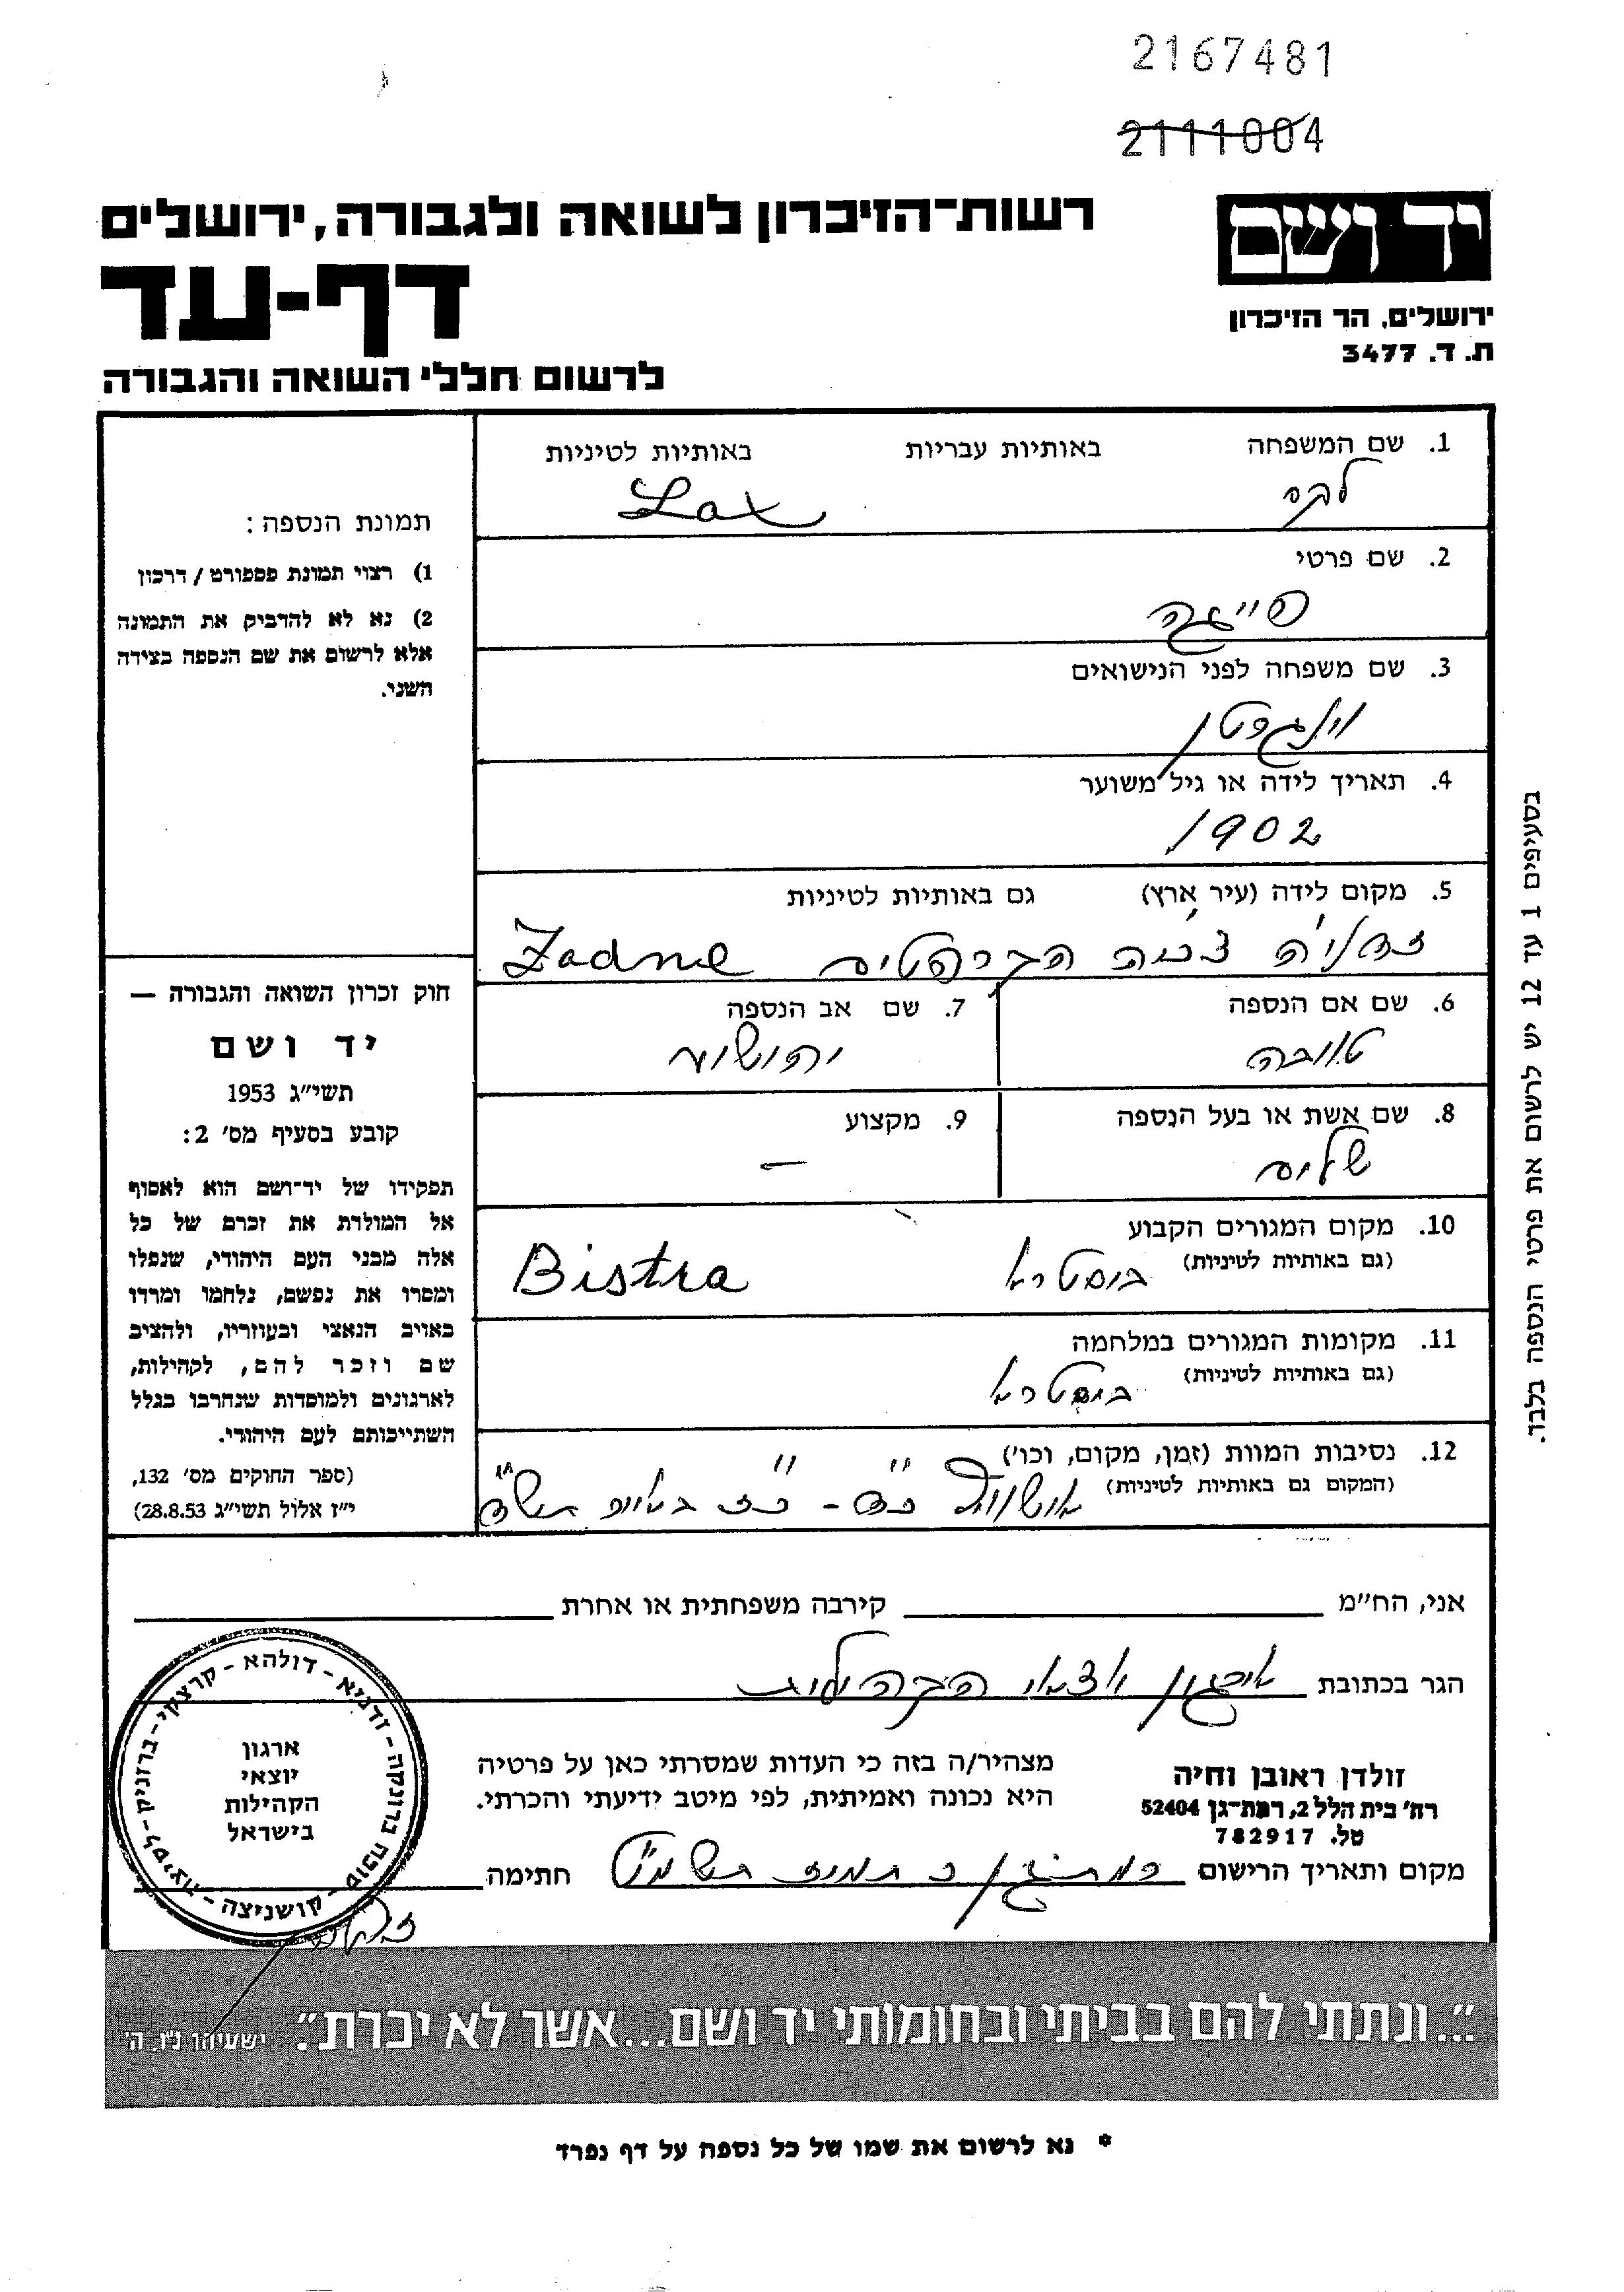 2167481
2111004
יד ושם
רשות-הזיכרון לשואה ולגבורה, ירושלים
דף-עד
ירושלים, הר הזיכרון
ת. ד. 3477
לרשום חללי השואה והגבורה
1. שם המשפחה באותיות עבריות באותיות לטיניות
לקס Lax
2. שם פרטי
פייגה
3. שם משפחה לפני הנישואים
וינגרטן
4. תאריך לידה או גיל משוער
1902
5. מקום לידה (עיר ארץ) גם באותיות לטיניות
Zadne
6. שם אם הנספה
טובה
7. שם אב הנספה
יהושוע
8. שם אשת או בעל הנספה
שלום
9. מקצוע
—
10. מקום המגורים הקבוע
(גם באותיות לטיניות)
ביסטרא Bistra
11. מקומות המגורים במלחמה
(גם באותיות לטיניות)
ביסטרא
12. נסיבות המוות (זמן, מקום, וכו')
(המקום גם באותיות לטיניות)
אושוויץ
תמונת הנספה:
1) רצוי תמונת פספורט / דרכון
2) נא לא להדביק את התמונה
אלא לרשום את שם הנספה בצידה
השני.
חוק זכרון השואה והגבורה —
יד ושם
תשי"ג 1953
קובע בסעיף מס' 2:
תפקידו של יד-ושם הוא לאסוף
אל המולדת את זכרם של כל
אלה מבני העם היהודי, שנפלו
ומסרו את נפשם, נלחמו ומרדו
באויב הנאצי ובעוזריו, ולהציב
שם וזכר להם, לקהילות,
לארגונים ולמוסדות שנחרבו בגלל
השתייכותם לעם היהודי.
(ספר החוקים מס' 132,
י"ז אלול תשי"ג 28.8.53)
בסעיפים 1 עד 12 יש לרשום את פרטי הנספה בלבד.
אני, הח"מ קירבה משפחתית או אחרת
הגר בכתובת ארגון יוצאי הקהילות
זולדן ראובן וחיה
רח' בית הלל 2, רמת-גן 52404
טל. 782917
מצהיר/ה בזה כי העדות שמסרתי כאן על פרטיה
היא נכונה ואמיתית, לפי מיטב ידיעתי והכרתי.
מקום ותאריך הרישום רמת גן תמוז חתימה
ארגון
יוצאי
הקהילות
בישראל
קרצקי - דולהא - זדניא - סוכה ברונקה - קושניצה - לסיצע - ברזניק
"...ונתתי להם בביתי ובחומותי יד ושם...אשר לא יכרת". ישעיהו נ"ו, ה'
* נא לרשום את שמו של כל נספה על דף נפרד